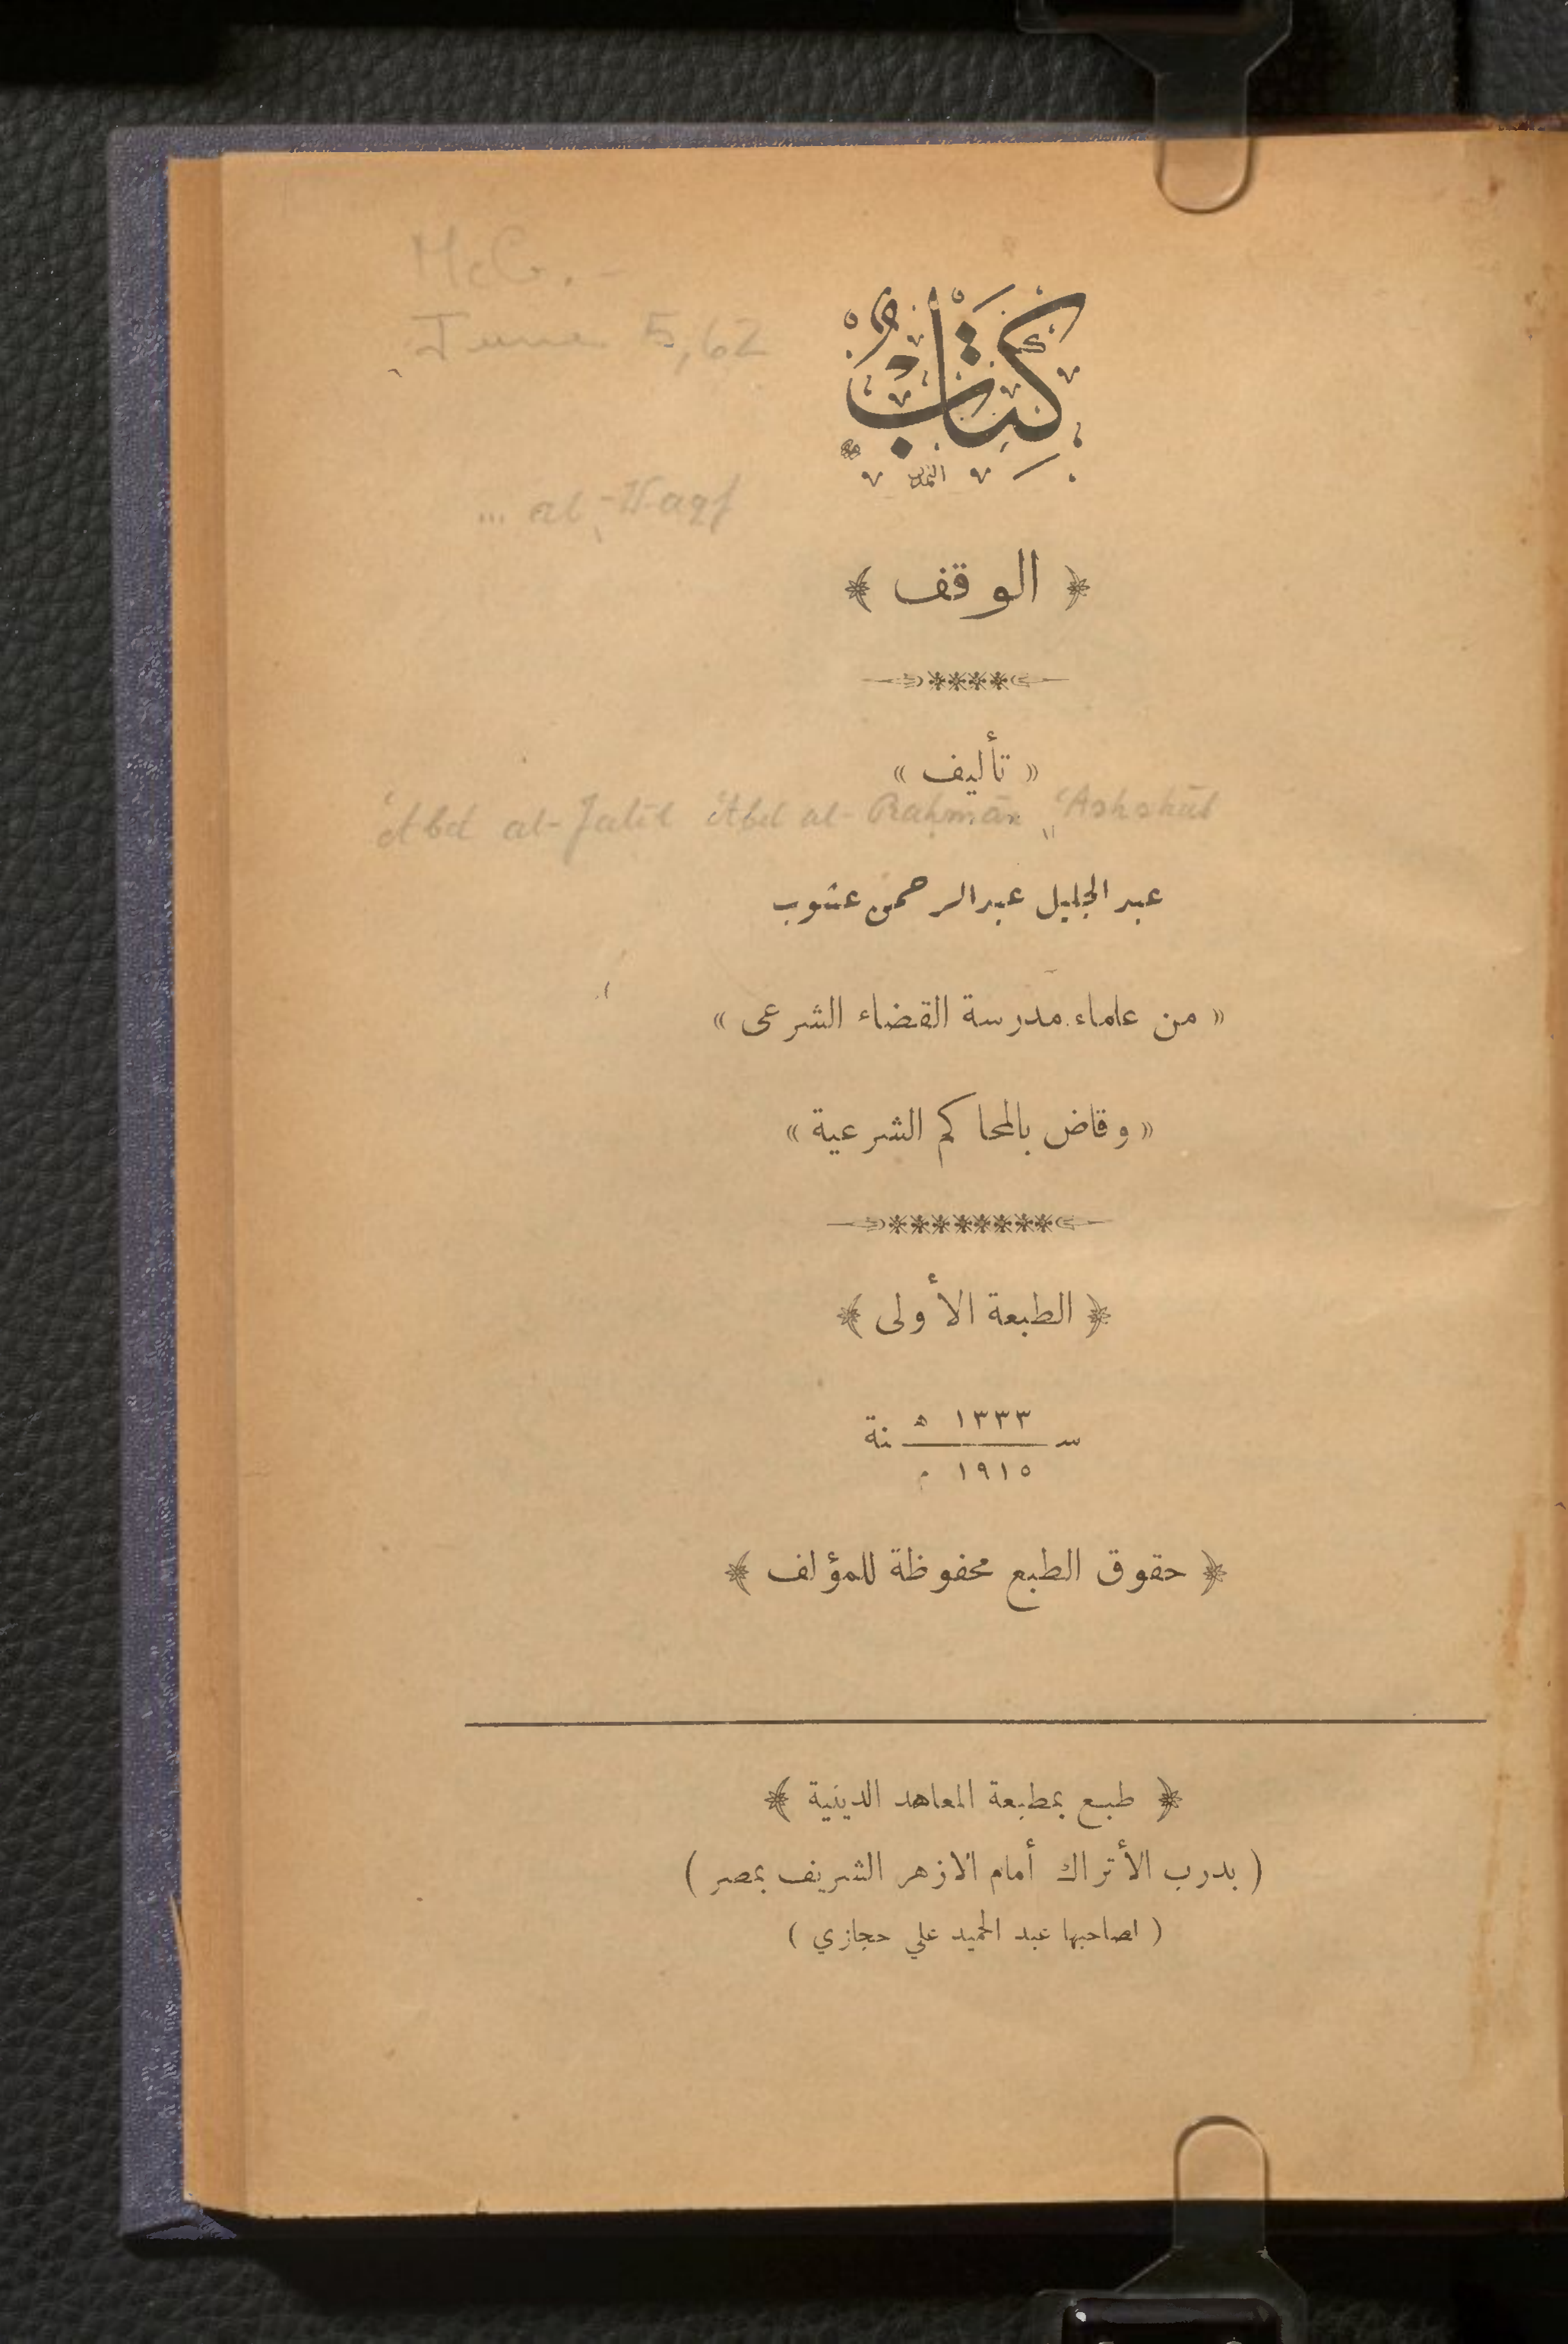 McG. -
June 5, 62
كِتَابْ
... al-Waqf
﴿ الوقف ﴾
« تأليف »
'Abd al-Jalīl 'Abd al-Raḥmān 'Ashshūb
عبد الجليل عبد الرحمن عشوب
« من علماء مدرسة القضاء الشرعى »
« وقاض بالمحاكم الشرعية »
﴿ الطبعة الأولى ﴾
سنة ١٣٣٣ ه
١٩١٥ م
﴿ حقوق الطبع محفوظة للمؤلف ﴾
﴿ طبع بمطبعة المعاهد الدينية ﴾
( بدرب الأتراك أمام الازهر الشريف بمصر )
( لصاحبها عبد الحميد علي حجازي )